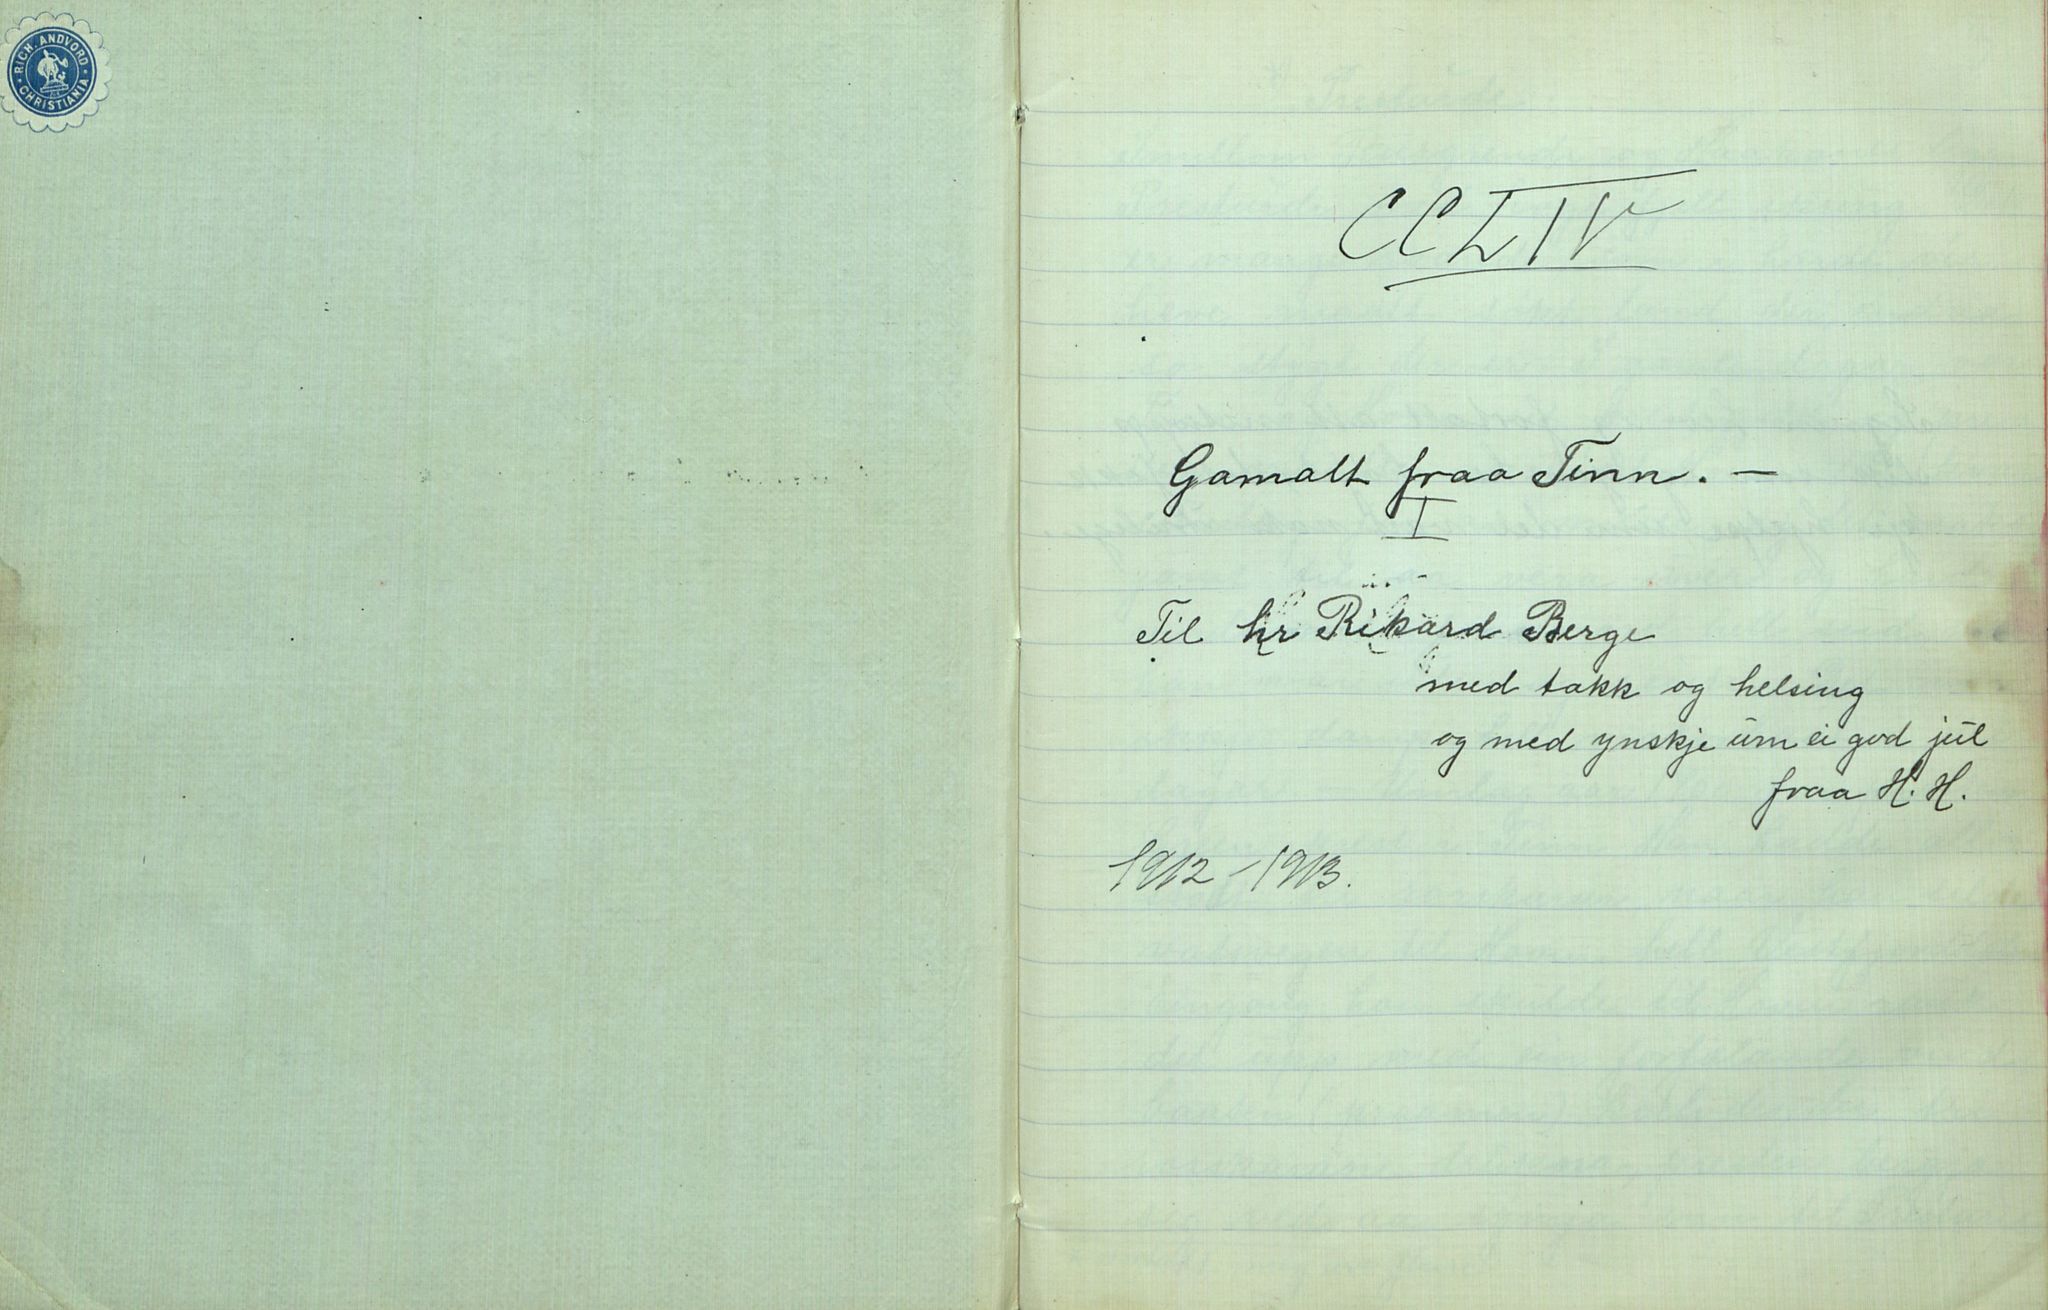 RICH. ANDVORD
CHRISTIANIA
CCLIV
Gamalt fraa Tinn. —
I
Til hr Rikard Berge
med takk og helsing
og med ynskje um ei god jul
fraa H. H.
1912 – 1913.